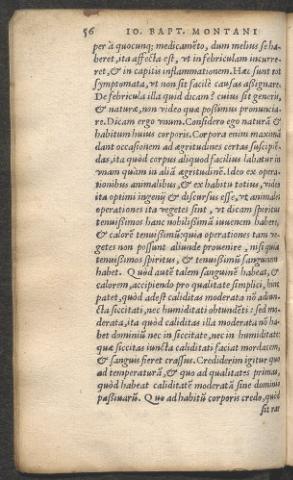 56 IO. BAPT. MONTANI
per à quocunq; medicamẽto, dum melius se ha-
beret, ita affecta est, vt in febriculam incurre-
ret, & in capitis inflammationem. Hæc sunt tot
symptomata, vt non sit facilè causas assignare.
De febricula illa quid dicam? cuius sit generis,
& naturæ, non video quæ possimus pronuncia
re. Dicam ergo vnum. Considero ego naturã &
habitum huius corporis. Corpora enim maximã
dant occasionem ad ægritudines certas suscipiẽ-
das, ita quòd corpus aliquod facilius labatur in
vnam quàm in aliã ægritudinẽ. Ideo ex opera-
tionibus animalibus, & ex habitu totius, video
ita optimi ingenij & discursus esse, vt animales
operationes ita vegetes sint, vt dicam spiritus
tenuissimos hanc nobilissimã iuuenem habere,
& calorẽ tenuissimũ: quia operationes tam ve-
getes non possunt aliunde prouenire, nisi quia
tenuissimos spiritus, & tenuissimũ sanguinem
habet. Quòd autẽ talem sanguinẽ habeat, &
calorem, accipiendo pro qualitate simplici, hinc
patet, quòd adest caliditas moderata nõ adiun-
cta siccitati, nec humiditati obtundẽti: sed mo-
derata, ita quòd caliditas illa moderata nõ ha-
bet dominiũ nec in siccitate, nec in humiditate:
quæ siccitas iuncta caliditati faciat mordacem,
& sanguis fieret crassus. Crediderim igitur quo
ad temperaturã, & quo ad qualitates primas,
quòd habeat caliditatẽ moderatã sine dominio
passiuarũ. Quo ad habitũ corporis credo, quòd
sit rar